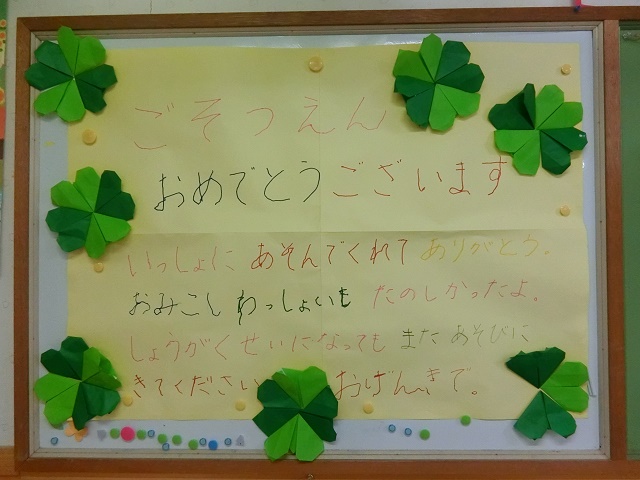 ごそつえん
おめでとうございます
いっしょに あそんでくれて ありがとう。
おみこし わっしょいも たのしかったよ。
しょうがくせいになっても また あそびに
きてください おげんきで。